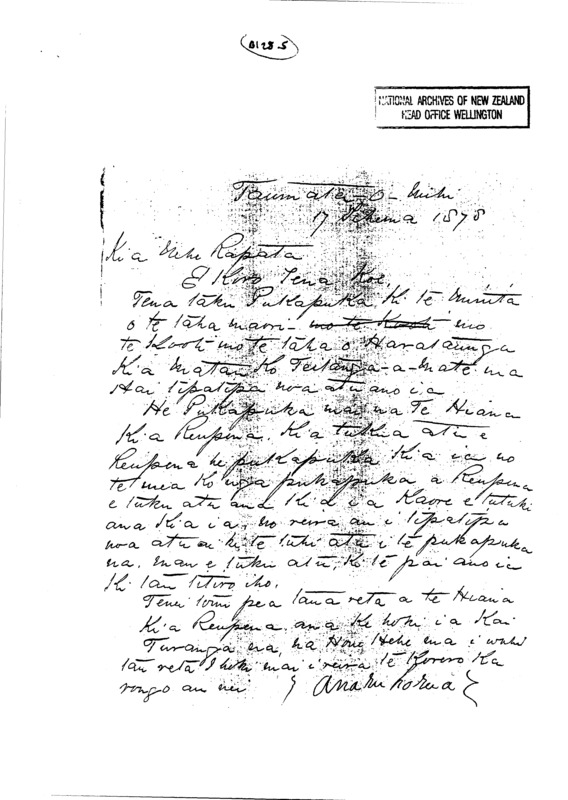 B128-5
NATIONAL ARCHIVES OF NEW ZEALAND
HEAD OFFICE WELLINGTON
Taumata-o-Mihi
17 1878
Kia Mehe Rapata
E Koro Tena Koe,
Tena taku Pukapuka Ki te Minita
o te taha maori - mo te Kooti mo
te Kooti mo te taha o Harataunga
Kia Matau Ko Teitanga-a-mate ma
Hai tipatipa noa atu ano ia
He Pukapuka mai na Te Hiana
Kia Reupena. Kia tukua atu e
Reupena he pukapuka Kia ia no
te mea Ko nga pukapuka a Reupena
e tuku atu ana Ki a ia Kaore e tutuki
ana Kia ia, no reira au i tipatipa
noa atu ai ki te tuhi atu i te pukapuka
na. mau e tuku atu, Ki te pai ano ia
Ki tau titiro iho.
Tenei tonu pea taua reta a te Hiana
Kia Reupena ana Ke hoki ia Kai
Turanga na, na Hone Hehe ma i wahi
tau reta I hoki mai i reira te Korero Ka
rongo au nei Anaru Korua